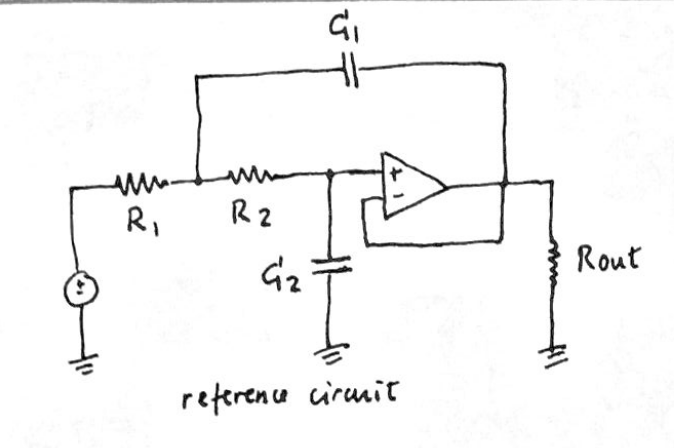 C1
R1
R2
+
-
C2
±
Rout
reference circuit